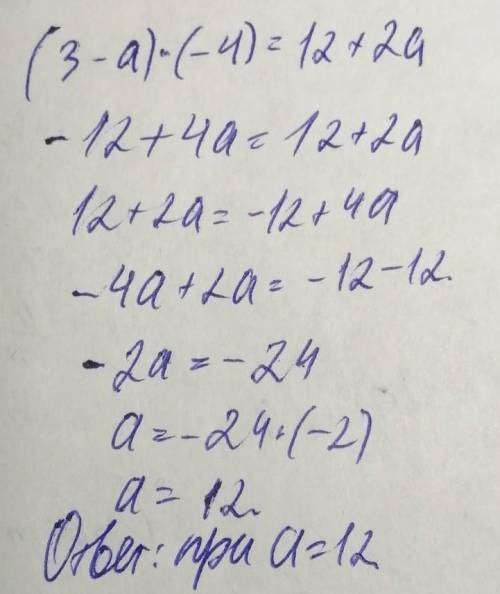 (3-a)·(-4)=12+2a
-12+4a=12+2a
12+2a=-12+4a
-4a+2a=-12-12.
-2a=-24
a=-24:(-2)
a=12.
Ответ: при a=12